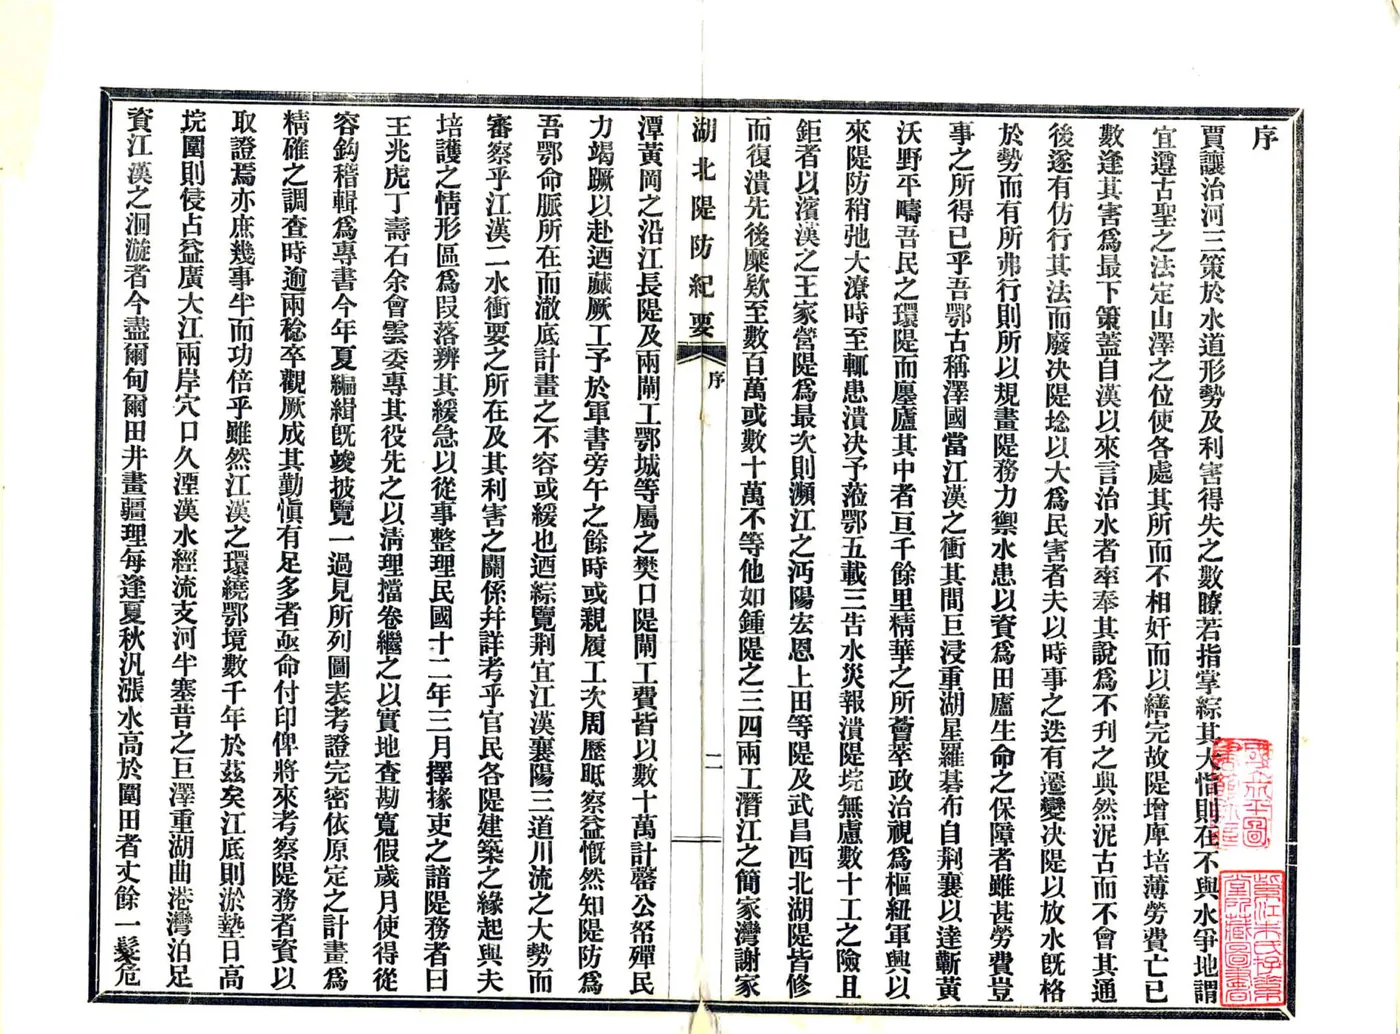 序
賈讓治河三策於水道形勢及利害得失之數瞭若指掌綜其大恉則在不與水爭地謂
宜遵古聖之法定山澤之位使各處其所而不相奸而以繕完故隄增庳培薄勞費亡已
數逢其害爲最下策蓋自漢以來言治水者率奉其說爲不刋之典然泥古而不會其通
後遂有仿行其法而廢决隄埝以大爲民害者夫以時事之迭有遷變决隄以放水旣格
於勢而有所弗行則所以規畫隄務力禦水患以資爲田廬生命之保障者雖甚勞費豈
事之所得已乎吾鄂古稱澤國當江漢之衝其間巨浸重湖星羅碁布自荆襄以達蘄黃
沃野平疇吾民之環隄而廛廬其中者亘千餘里精華之所薈萃政治視爲樞紐軍興以
來隄防稍弛大潦時至輒患潰决予蒞鄂五載三告水災報潰隄垸無慮數十工之險且
鉅者以濱漢之王家營隄爲最次則瀕江之沔陽宏恩上田等隄及武昌西北湖隄皆修
而復潰先後糜欵至數百萬或數十萬不等他如鍾隄之三四兩工潛江之簡家灣謝家
湖北隄防紀要
序
二
潭黃岡之沿江長隄及兩閘工鄂城等屬之樊口隄閘工費皆以數十萬計罄公帑殫民
力竭蹶以赴迺藏厥工予於軍書旁午之餘時或親履工次周歷眂察益慨然知隄防爲
吾鄂命脈所在而澈底計畫之不容或緩也迺綜覽荆宜江漢襄陽三道川流之大勢而
審察乎江漢二水衝要之所在及其利害之關係幷詳考乎官民各隄建築之緣起與夫
培護之情形區爲段落辨其緩急以從事整理民國十二年三月擇掾吏之諳隄務者曰
王兆虎丁壽石余會雲委專其役先之以淸理擋卷繼之以實地查勘寬假歲月使得從
容鈎稽輯爲專書今年夏編緝旣竣披覽一過見所列圖表考證完密依原定之計畫爲
精確之調查時逾兩稔卒觀厥成其勤愼有足多者亟命付印俾將來考察隄務者資以
取證焉亦庶幾事半而功倍乎雖然江漢之環繞鄂境數千年於茲矣江底則淤墊日高
垸圍則侵占益廣大江兩岸穴口久湮漢水經流支河半塞昔之巨澤重湖曲港灣泊足
資江漢之洄漩者今盡爾甸爾田井畫疆理每逢夏秋汛漲水高於圍田者丈餘一髮危